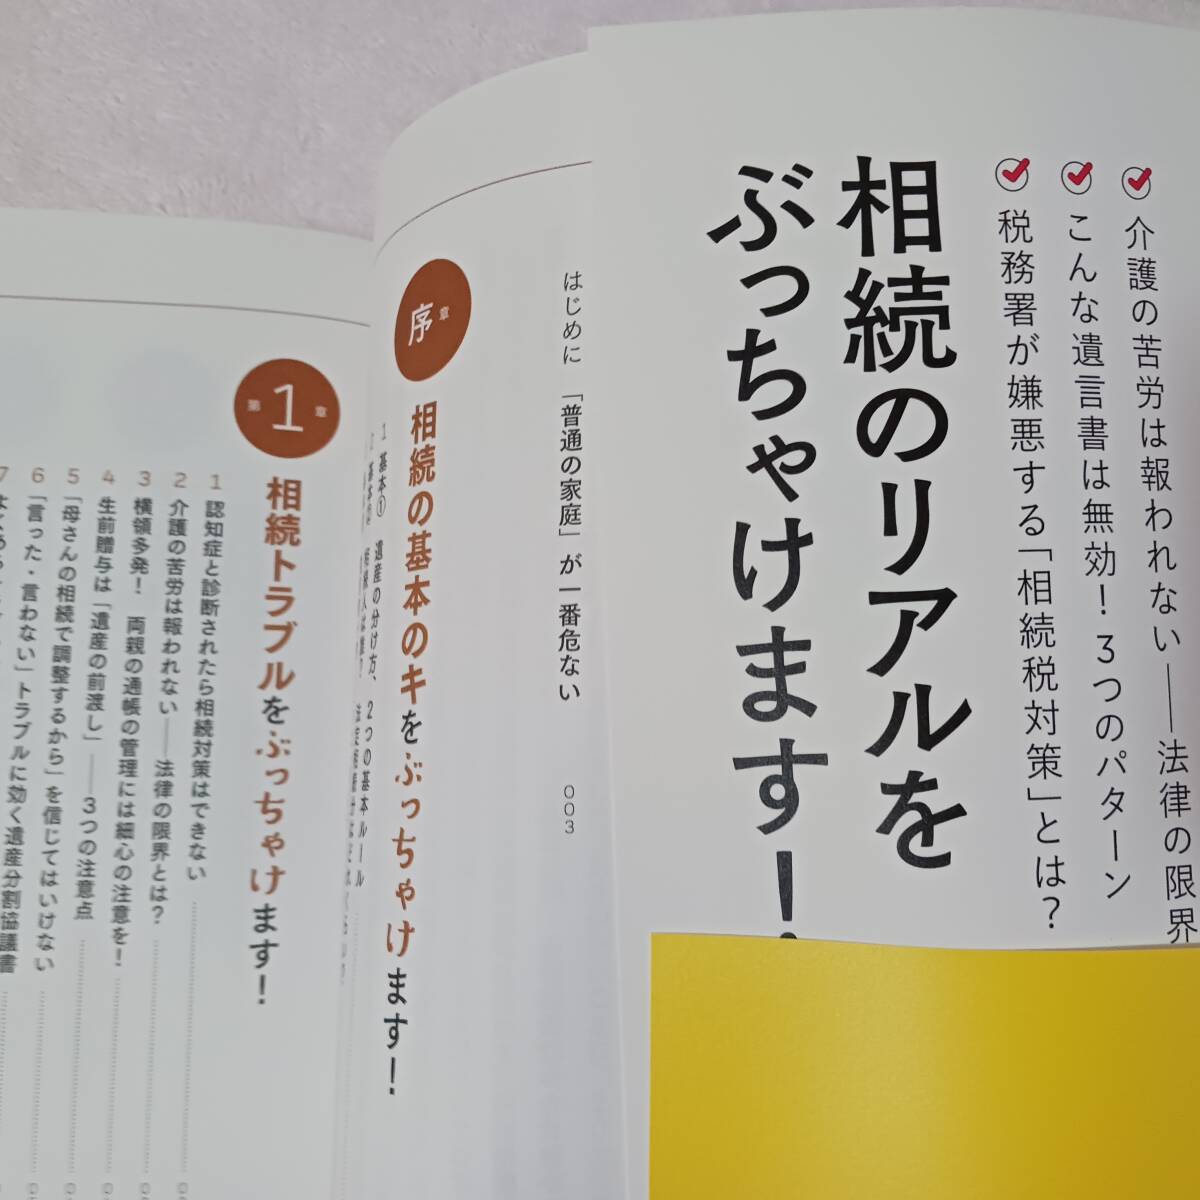 介護の苦労は報われない――法律の限界
こんな遺言書は無効！3つのパターン
税務署が嫌悪する「相続税対策」とは？
相続のリアルを
ぶっちゃけます！
はじめに　「普通の家庭」が一番危ない　003
序章
相続の基本のキをぶっちゃけます！
1　基本①　遺産の分け方、2つの基本ルール
2　基本②
第1章
相続トラブルをぶっちゃけます！
1　認知症と診断されたら相続対策はできない
2　介護の苦労は報われない――法律の限界とは？
3　横領多発！　両親の通帳の管理には細心の注意を！
4　生前贈与は「遺産の前渡し」――3つの注意点
5　「母さんの相続で調整するから」を信じてはいけない
6　「言った・言わない」トラブルに効く遺産分割協議書
7